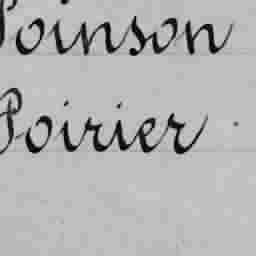 Poinson
Poirier